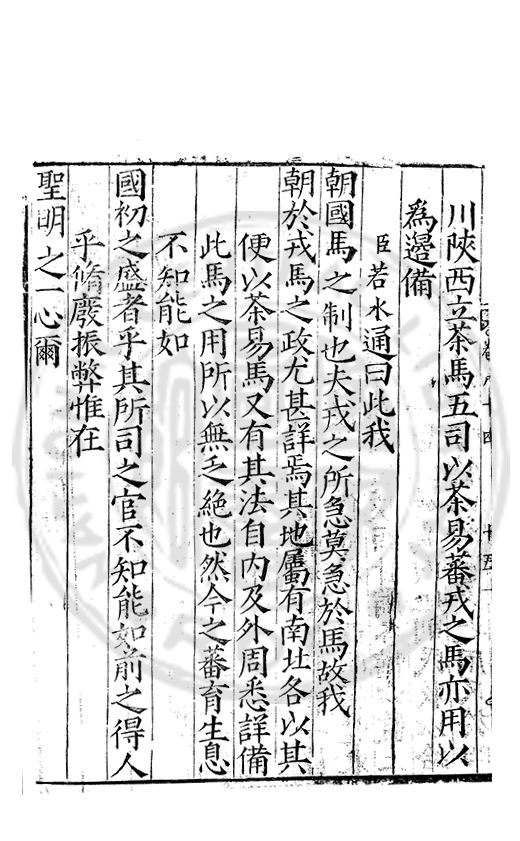 川陝西立茶馬五司以茶易蕃戎之馬亦用以
爲邊備
臣若水通曰此我
朝國馬之制也夫戎之所急莫急於馬故我
朝於戎馬之政尤甚詳焉其地屬有南北各以其
便以茶易馬又有其法自内及外周悉詳備
此馬之用所以無乏絶也然今之蕃育生息
不知能如
國初之盛者乎其所司之官不知能如前之得人
乎脩廢振弊惟在
聖明之一心爾